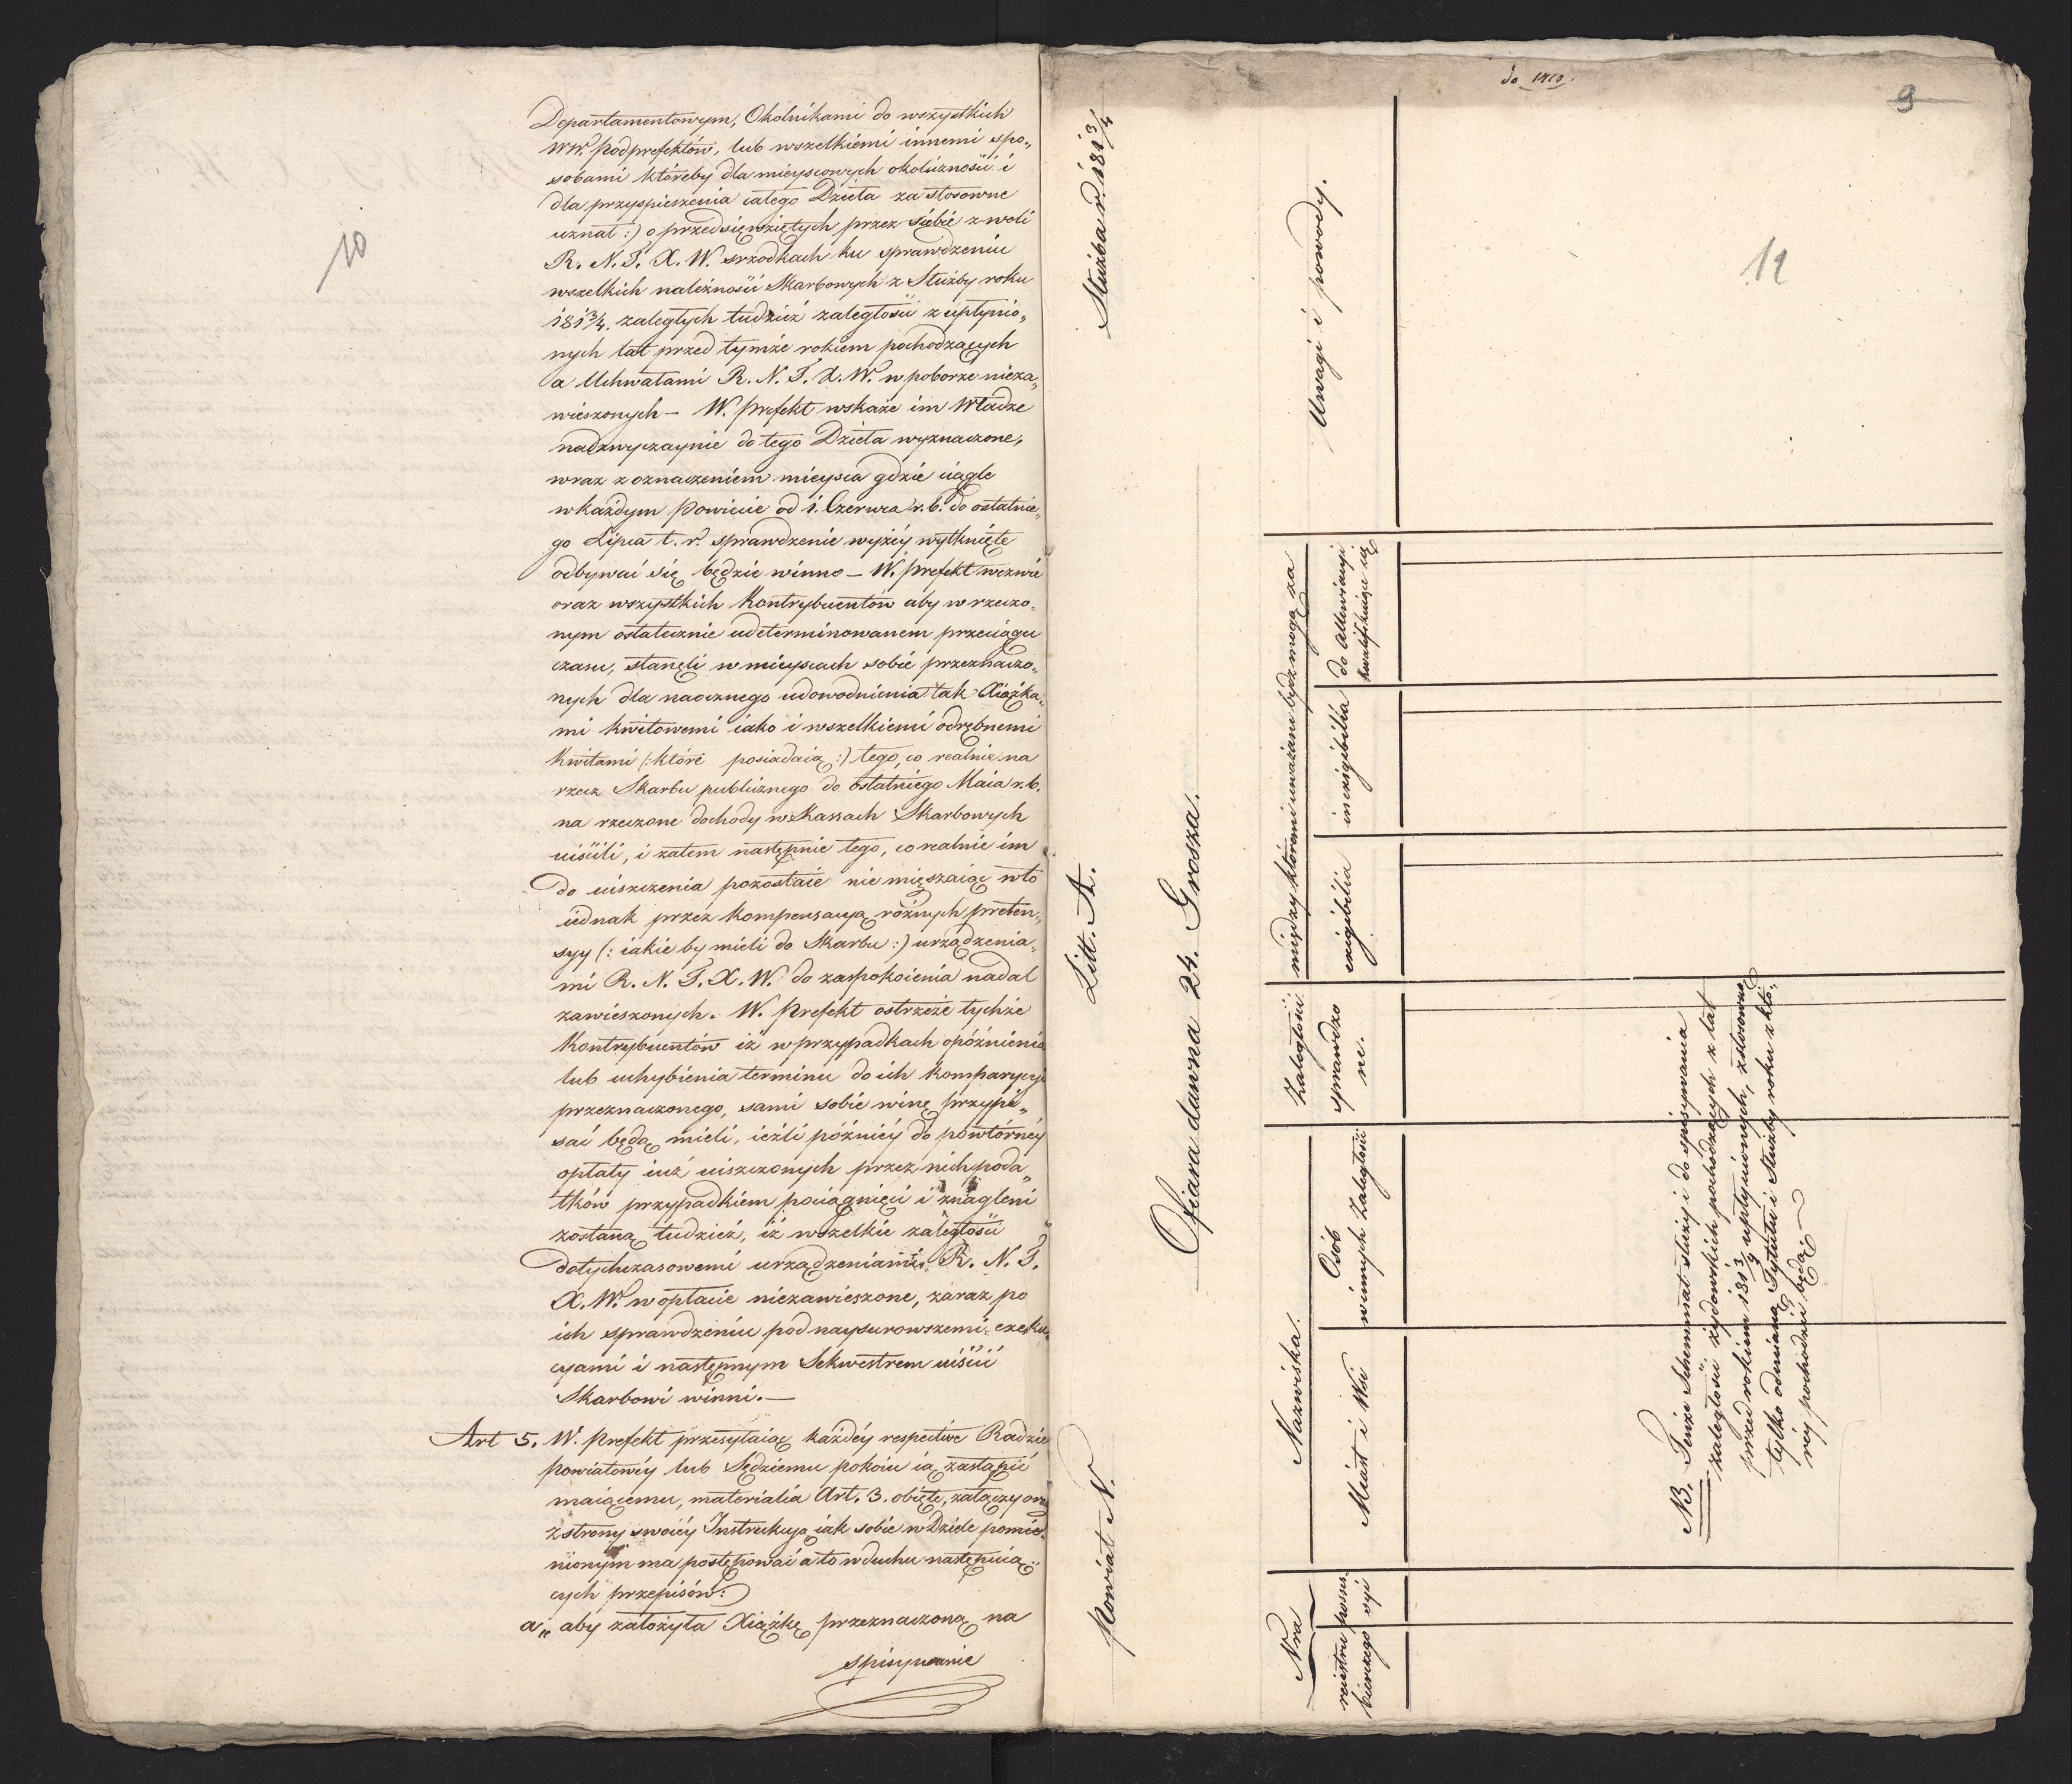 10
Departamentowym, Okolnikami do wszystkich
WW. Podprefektów, lub wszelkiemi innemi spo„
sobami któreby dla mieyscowych okoliczności i
dla przyspieszenia całego Dzieła za stosowne
uznał :) o przedsięwziętych przez siebie z woli
R. N. T. X. W. srzodkach ku sprawdzeniu
wszelkich należności Skarbowych z Służby roku
181¾. zaległych tudzież zaległości z upłynio„
nych lat przed tymże rokiem pochodzących
a Uchwałami R. N. T. X. W. w poborze nieza„
wieszonych – W. Prefekt wskaże im Władze
nadzwyczaynie do tego Dzieła wyznaczone,
wraz z oznaczeniem mieysca gdzie ciągle
w każdym Powiecie od 1. Czerwca r. b. do ostatnie„
go Lipca t. r. sprawdzenie wyżéy wytknięte
odbywać się będzie winno – W. Prefekt wezwie
oraz wszystkich Kontrybuentów aby w rzeczo„
nym ostatecznie udeterminowanem przeciągu
czasu, stanęli w mieyscach sobie przeznaczo„
nych dla naocznego udowodnienia tak Xiążka„
mi kwitowemi iako i wszelkiemi odrębnemi
Kwitami (: które posiadaią :) tego, co realnie na
rzecz Skarbu publicznego do ostatniego Maia r. b.
na rzeczone dochody w Kassach Skarbowych
uiścili, i zatem następnie tego, co realnie im
do uiszczenia pozostaie nie mięszaiąc w to
iednak przez kompensacyą różnych preten„
syy (: iakie by mieli do Skarbu :) urządzenia„
mi R. N. T. X. W. do zaspokoienia nadal
zawieszonych. W. Prefekt ostrzeże tychże
Kontrybuentów iż w przypadkach opóźnienia
lub uchybienia terminu do ich komparycyi
przeznaczonego, sami sobie winę przypi„
sać będą mieli, ieżli późniéy do powtórnéy
opłaty iuż uiszczonych przez nich poda„
tków przypadkiem pociągnięci i znagleni
zostaną tudzież, iż wszelkie zaległości
dotychczasowemi urządzeniami R. N. T.
X. W. w opłacie niezawieszone, zaraz po
ich sprawdzeniu pod naysurowszemi exeku„
cyami i następnym Sekwestrem uiścić
Skarbowi winni. —
Art 5. W. Prefekt przesyłaiąc każdéy respective Radzie
powiatowéy lub Sędziemu pokoiu ią zastąpić
maiącemu, materialia Art. 3. obięte, załączy oraz
z strony swoiéy Instrukcyą iak sobie w Dziele pomie„
nionym ma postępować a to w duchu następuią„
cych przepisów:
a„ aby założyła Xiążkę przeznaczoną na
spisywanie
do 1410.
9
11
Powiat N. Litt. A. Służba r. 181¾
Ofiara dawna 24. Grosza.
Nra
reiestru bierczego
posses. syi
Nazwiska.
Miast i Wsi
Osób winnych Zaległość
Zaległości sprawdzo ne.
między któremi uważane bydz mogą za
exigibilia
inexigibilia
do allewiacyi kwalifikuiące się
Uwagi i powody.
NB. Tenże Schemmat służy i do spisywania
zaległości żydowskich pochodzących z lat
przed rokiem 181¾ upłynionych, zstosowną
tylko odmianą Tytułu i Służby roku z któ„
réy pochodzić będą.